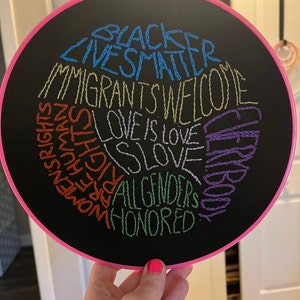 BLACK
LIVES MATTER
IMMIGRANTS WELCOME
WOMENS RIGHTS
ARE HUMAN
RIGHTS
LOVE IS LOVE
IS LOVE
EVERYBODY
ALL GENDERS
HONORED